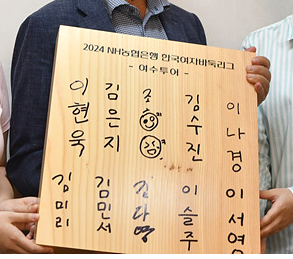 2024 NH농협은행 한국여자바둑리그
- 여수투어 -
이현욱
김은지
조
김수진
이나경
김미리
김민서
김다영
이슬주
이서영